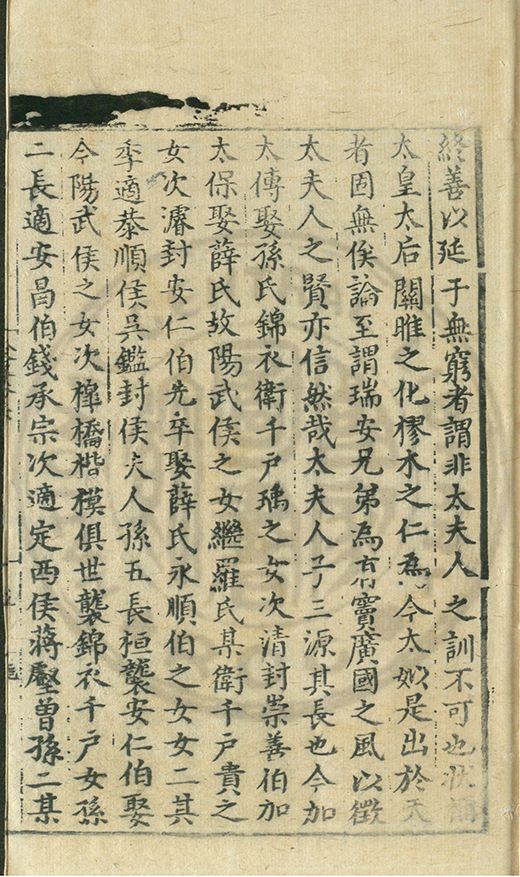 終善以延于無窮者謂非太夫人之訓不可也狀
太皇太后關雎之化樛木之仁為今太姒是出於天
者固無俟論至謂瑞安兄弟為有竇廣國之風以徵
太夫人之賢亦信然哉太夫人子三源其長也今加
太傅娶孫氏錦衣衛千戶瑀之女次清封崇善伯加
太保娶薛氏故陽武侯之女繼羅氏某衛千戶貴之
女次濬封安仁伯先卒娶薛氏永順伯之女女二其
季適恭順侯吳鑑封侯夫人孫五長桓襲安仁伯娶
今陽武侯之女次橋楷模俱世襲錦衣千戶女孫
二長適安昌伯錢承宗次適定西侯蔣壑曾孫二某